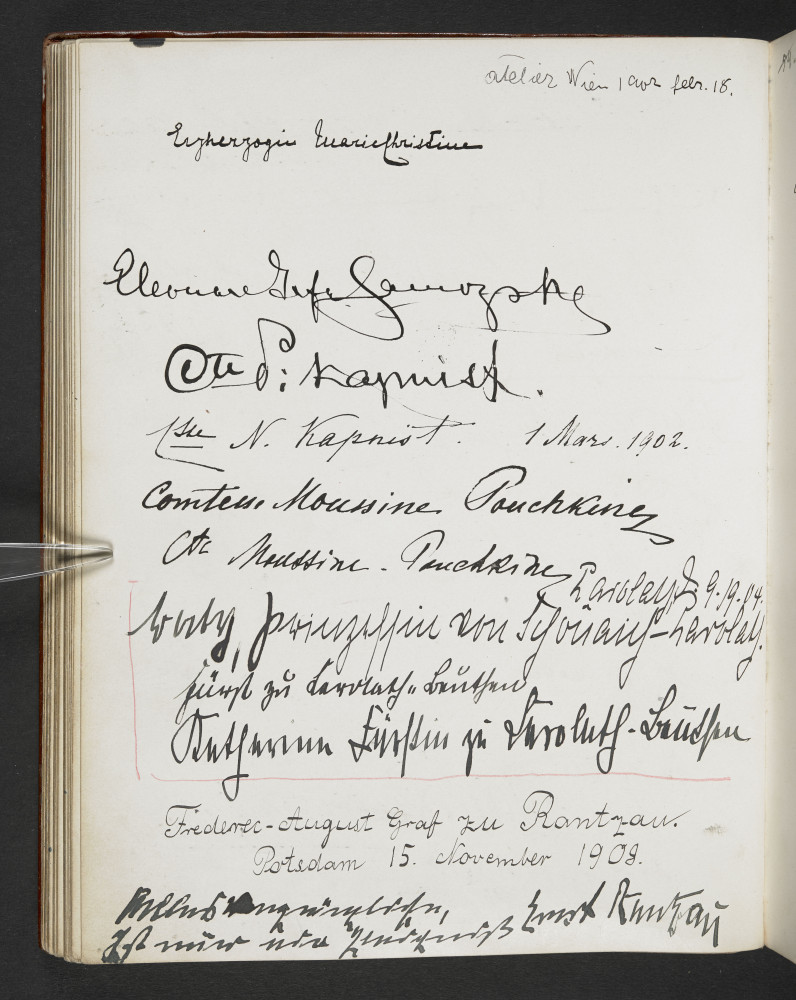 atelier Wien 1902 febr. 18.
Erzherzogin Marie Christine
Eleonore Gfn Zamoyska
Cte P: Kapnist.
Csse N. Kapnist. 1 Mars. 1902.
Comtesse Moussine Pouchkine
Cte Moussine-Pouchkine
Carolath, 9.19.04.
Wanda, Prinzessin von Schönaich-Carolath.
Fürst zu Carolath-Beuthen
Katharina Fürstin zu Carolath-Beuthen
Frederec-August Graf zu Rantzau.
Potsdam 15. November 1908.
Alles Vergängliche, Ernst Rantzau
Ist nur ein